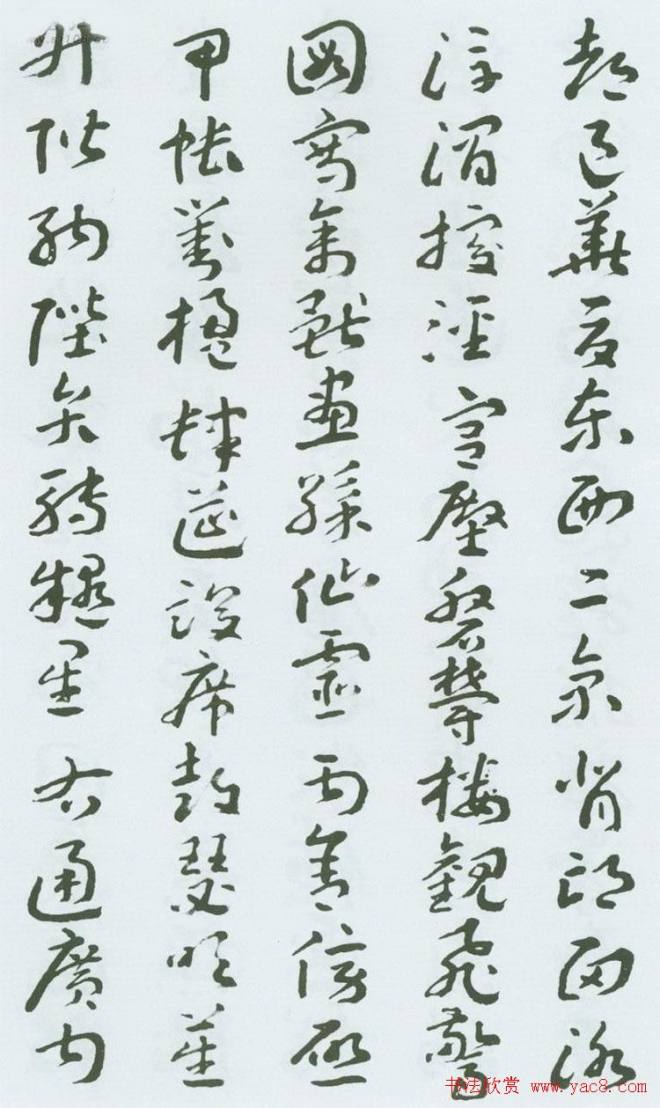 都邑華夏東西二京背邙面洛
浮渭據涇宮殿磐鬱樓觀飛驚
圖寫禽獸畫彩仙靈丙舍傍啟
甲帳對楹肆筵設席鼓瑟吹笙
升階納陛弁轉疑星右通廣內
书法欣赏 www.yac8.com